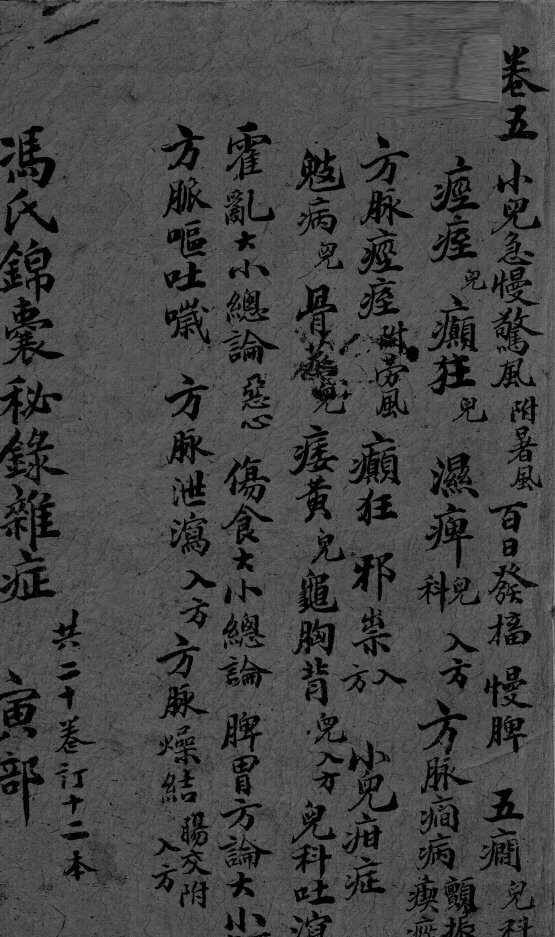 卷五 小兒急慢驚風 附暑風 百日發搐 慢脾 五癇 兒科
痙痓 兒 癲狂 兒 濕痺 兒科 入方 方脉癎病 顫振
方脉痙痓 附旁風 癲狂 邪祟 入方 小兒疳症
鬾病 兒 骨 兒 痿黃 兒 龜胸背 兒 入方 兒科吐瀉
霍亂大小總論 惡心 傷食大小總論 脾胃方論大小
方脈嘔吐噦 方脉泄瀉 入方 方脉燥結 腸交附 入方
共二十卷訂十二本
馮氏錦囊秘錄雜症 寅部